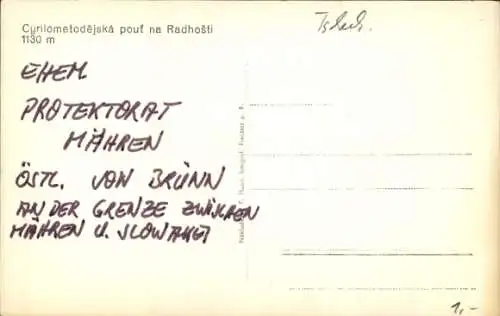 Cyrilometodějská pouť na Radhošti
1130 m
Tschech.
EHEM.
PROTEKTORAT
MÄHREN
ÖSTL. VON BRÜNN
AN DER GRENZE ZWISCHEN
MÄHREN U. SLOWAKEI
1,-